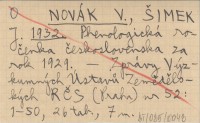 O NOVÁK V., ŠIMEK
J. 1932. Phenologická ro-
čenka Československa za
rok 1929. — Zprávy Výz-
kumných Ústavů Zeměděl-
ských RČS (Praha) nr 52:
1-50, 26 tab, 7 m.